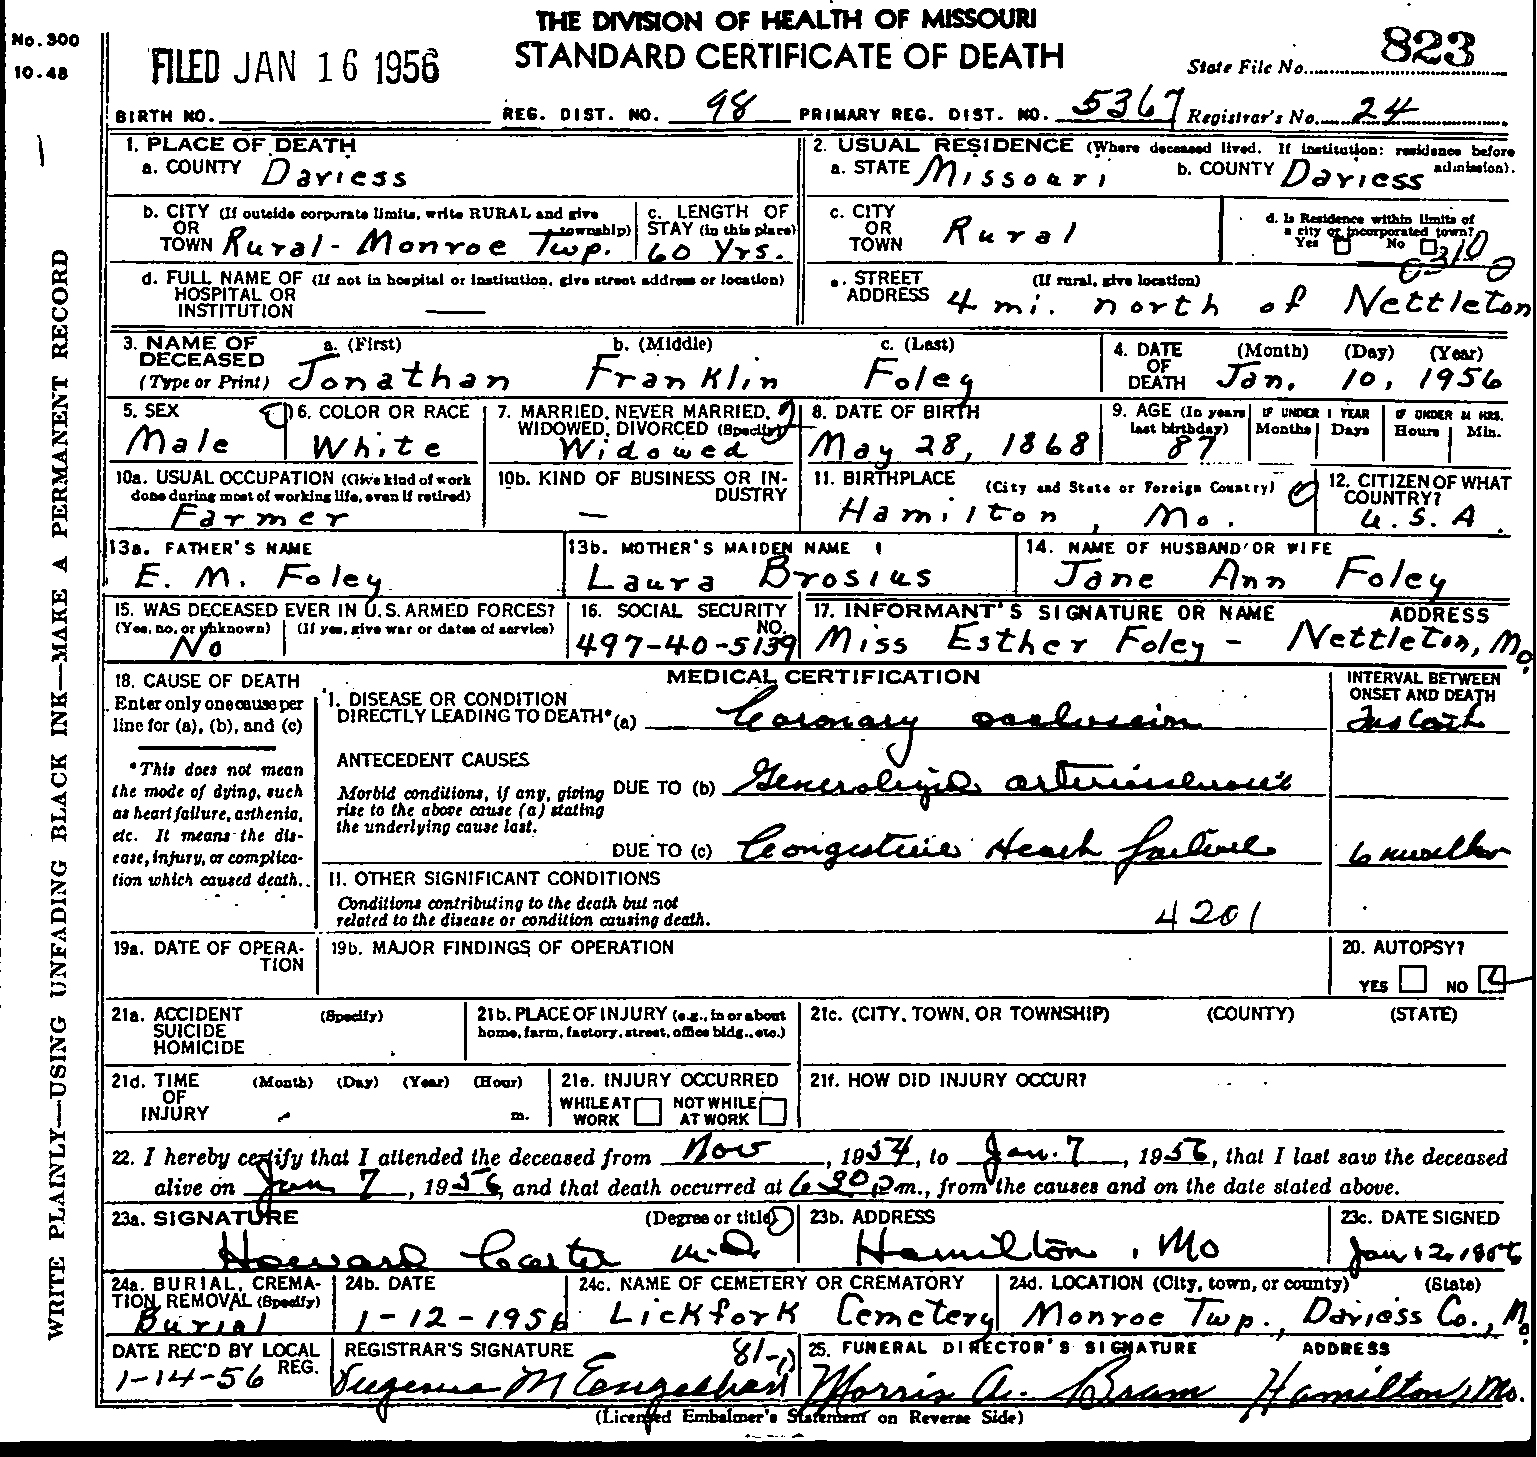 THE DIVISION OF HEALTH OF MISSOURI
STANDARD CERTIFICATE OF DEATH
No. 300
10-48
FILED JAN 16 1956
State File No. 823
BIRTH NO. REG. DIST. NO. 98 PRIMARY REG. DIST. NO. 5367 Registrar's No. 24
WRITE PLAINLY—USING UNFADING BLACK INK—MAKE A PERMANENT RECORD
1. PLACE OF DEATH
a. COUNTY Daviess
2. USUAL RESIDENCE (Where deceased lived. If institution: residence before admission).
a. STATE Missouri b. COUNTY Daviess
b. CITY (If outside corporate limits, write RURAL and give township)
OR
TOWN Rural - Monroe Twp.
c. LENGTH OF
STAY (in this place)
60 Yrs.
c. CITY
OR
TOWN Rural
d. Is Residence within limits of
a city or incorporated town?
Yes No
0310
d. FULL NAME OF (If not in hospital or institution, give street address or location)
HOSPITAL OR
INSTITUTION —
e. STREET (If rural, give location)
ADDRESS 4 mi. north of Nettleton
3. NAME OF a. (First) b. (Middle) c. (Last)
DECEASED
(Type or Print) Jonathan Franklin Foley
4. DATE (Month) (Day) (Year)
OF
DEATH Jan. 10, 1956
5. SEX
Male
6. COLOR OR RACE
White
7. MARRIED, NEVER MARRIED,
WIDOWED, DIVORCED (Specify)
Widowed
8. DATE OF BIRTH
May 28, 1868
9. AGE (In years
last birthday)
87
IF UNDER 1 YEAR
Months Days
IF UNDER 24 HRS.
Hours Min.
10a. USUAL OCCUPATION (Give kind of work
done during most of working life, even if retired)
Farmer
10b. KIND OF BUSINESS OR IN-
DUSTRY
—
11. BIRTHPLACE (City and State or Foreign Country)
Hamilton, Mo.
12. CITIZEN OF WHAT
COUNTRY?
U.S.A.
13a. FATHER'S NAME
E. M. Foley
13b. MOTHER'S MAIDEN NAME
Laura Brosius
14. NAME OF HUSBAND OR WIFE
Jane Ann Foley
15. WAS DECEASED EVER IN U.S. ARMED FORCES?
(Yes, no, or unknown) (If yes, give war or dates of service)
No
16. SOCIAL SECURITY
NO.
497-40-5139
17. INFORMANT'S SIGNATURE OR NAME ADDRESS
Miss Esther Foley - Nettleton, Mo.
18. CAUSE OF DEATH
Enter only one cause per
line for (a), (b), and (c)
*This does not mean
the mode of dying, such
as heart failure, asthenia,
etc. It means the dis-
ease, injury, or complica-
tion which caused death.
MEDICAL CERTIFICATION
INTERVAL BETWEEN
ONSET AND DEATH
I. DISEASE OR CONDITION
DIRECTLY LEADING TO DEATH* (a) Coronary occlusion
ANTECEDENT CAUSES
Morbid conditions, if any, giving
rise to the above cause (a) stating
the underlying cause last.
DUE TO (b) Generalized arteriosclerosis
DUE TO (c) Congestive Heart failure
II. OTHER SIGNIFICANT CONDITIONS
Conditions contributing to the death but not
related to the disease or condition causing death.
4201
19a. DATE OF OPERA-
TION
19b. MAJOR FINDINGS OF OPERATION
20. AUTOPSY?
YES NO
21a. ACCIDENT (Specify)
SUICIDE
HOMICIDE
21b. PLACE OF INJURY (e.g., in or about
home, farm, factory, street, office bldg., etc.)
21c. (CITY, TOWN, OR TOWNSHIP) (COUNTY) (STATE)
21d. TIME (Month) (Day) (Year) (Hour)
OF
INJURY m.
21e. INJURY OCCURRED
WHILE AT
WORK
NOT WHILE
AT WORK
21f. HOW DID INJURY OCCUR?
22. I hereby certify that I attended the deceased from Nov, 1954, to Jan. 7, 1956, that I last saw the deceased
alive on Jan 7, 1956, and that death occurred at 6:30 p.m., from the causes and on the date stated above.
23a. SIGNATURE (Degree or title)
Howard Carter M.D.
23b. ADDRESS
Hamilton, Mo
23c. DATE SIGNED
Jan 12, 1956
24a. BURIAL, CREMA-
TION, REMOVAL (Specify)
Burial
24b. DATE
1-12-1956
24c. NAME OF CEMETERY OR CREMATORY
Lickfork Cemetery
24d. LOCATION (City, town, or county) (State)
Monroe Twp., Daviess Co., Mo.
DATE REC'D BY LOCAL
REG.
1-14-56
REGISTRAR'S SIGNATURE
25. FUNERAL DIRECTOR'S SIGNATURE ADDRESS
Morris A. Bram Hamilton, Mo.
(Licensed Embalmer's Statement on Reverse Side)